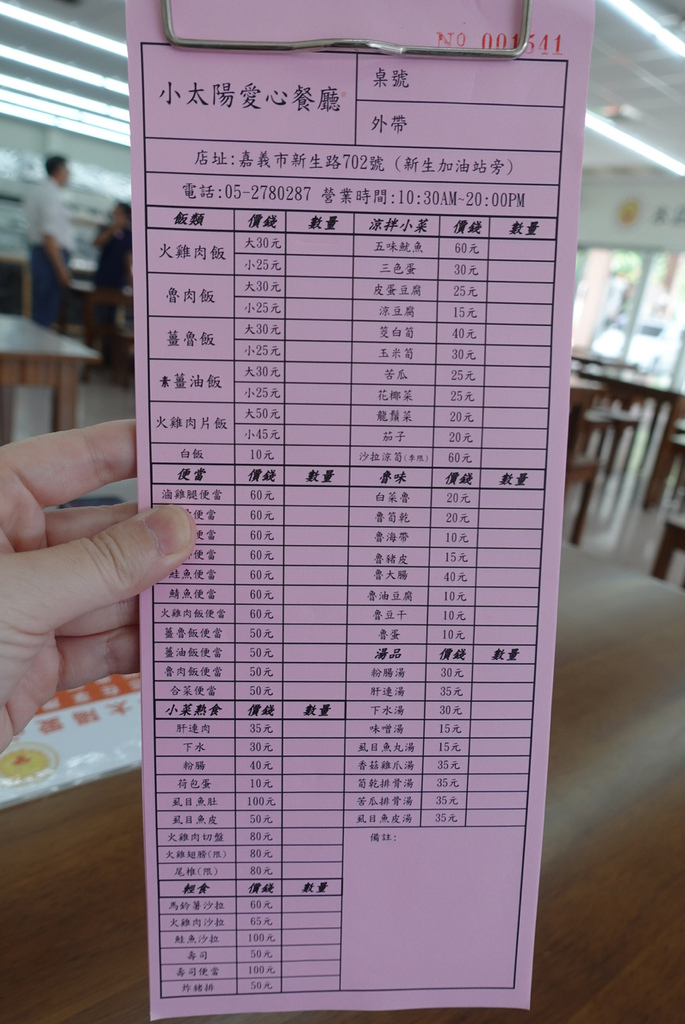 NO 001541
小太陽愛心餐廳
桌號
外帶
店址:嘉義市新生路702號 (新生加油站旁)
電話:05-2780287 營業時間:10:30AM~20:00PM
飯類 價錢 數量
火雞肉飯 大30元
小25元
魯肉飯 大30元
小25元
薑魯飯 大30元
小25元
素薑油飯 大30元
小25元
火雞肉片飯 大50元
小45元
白飯 10元
便當 價錢 數量
滷雞腿便當 60元
便當 60元
便當 60元
鮭魚便當 60元
鯖魚便當 60元
火雞肉飯便當 60元
薑魯飯便當 50元
薑油飯便當 50元
魯肉飯便當 50元
合菜便當 50元
小菜熱食 價錢 數量
肝連肉 35元
下水 30元
粉腸 40元
荷包蛋 10元
虱目魚肚 100元
虱目魚皮 50元
火雞肉切盤 80元
火雞翅膀(限) 80元
尾椎(限) 80元
輕食 價錢 數量
馬鈴薯沙拉 60元
火雞肉沙拉 65元
鮭魚沙拉 100元
壽司 50元
壽司便當 100元
炸豬排 50元
涼拌小菜 價錢 數量
五味魷魚 60元
三色蛋 30元
皮蛋豆腐 25元
涼豆腐 15元
茭白筍 40元
玉米筍 30元
苦瓜 25元
花椰菜 25元
龍鬚菜 20元
茄子 20元
沙拉涼筍(季限) 60元
魯味 價錢 數量
白菜魯 20元
魯筍乾 20元
魯海帶 10元
魯豬皮 15元
魯大腸 40元
魯油豆腐 10元
魯豆干 10元
魯蛋 10元
湯品 價錢 數量
粉腸湯 30元
肝連湯 35元
下水湯 30元
味噌湯 15元
虱目魚丸湯 15元
香菇雞爪湯 35元
筍乾排骨湯 35元
苦瓜排骨湯 35元
虱目魚皮湯 35元
備註:
太陽愛